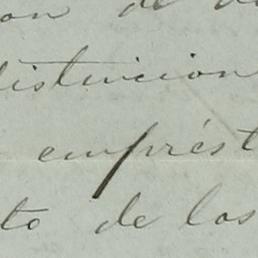 on de
distincion
emprést
to de los